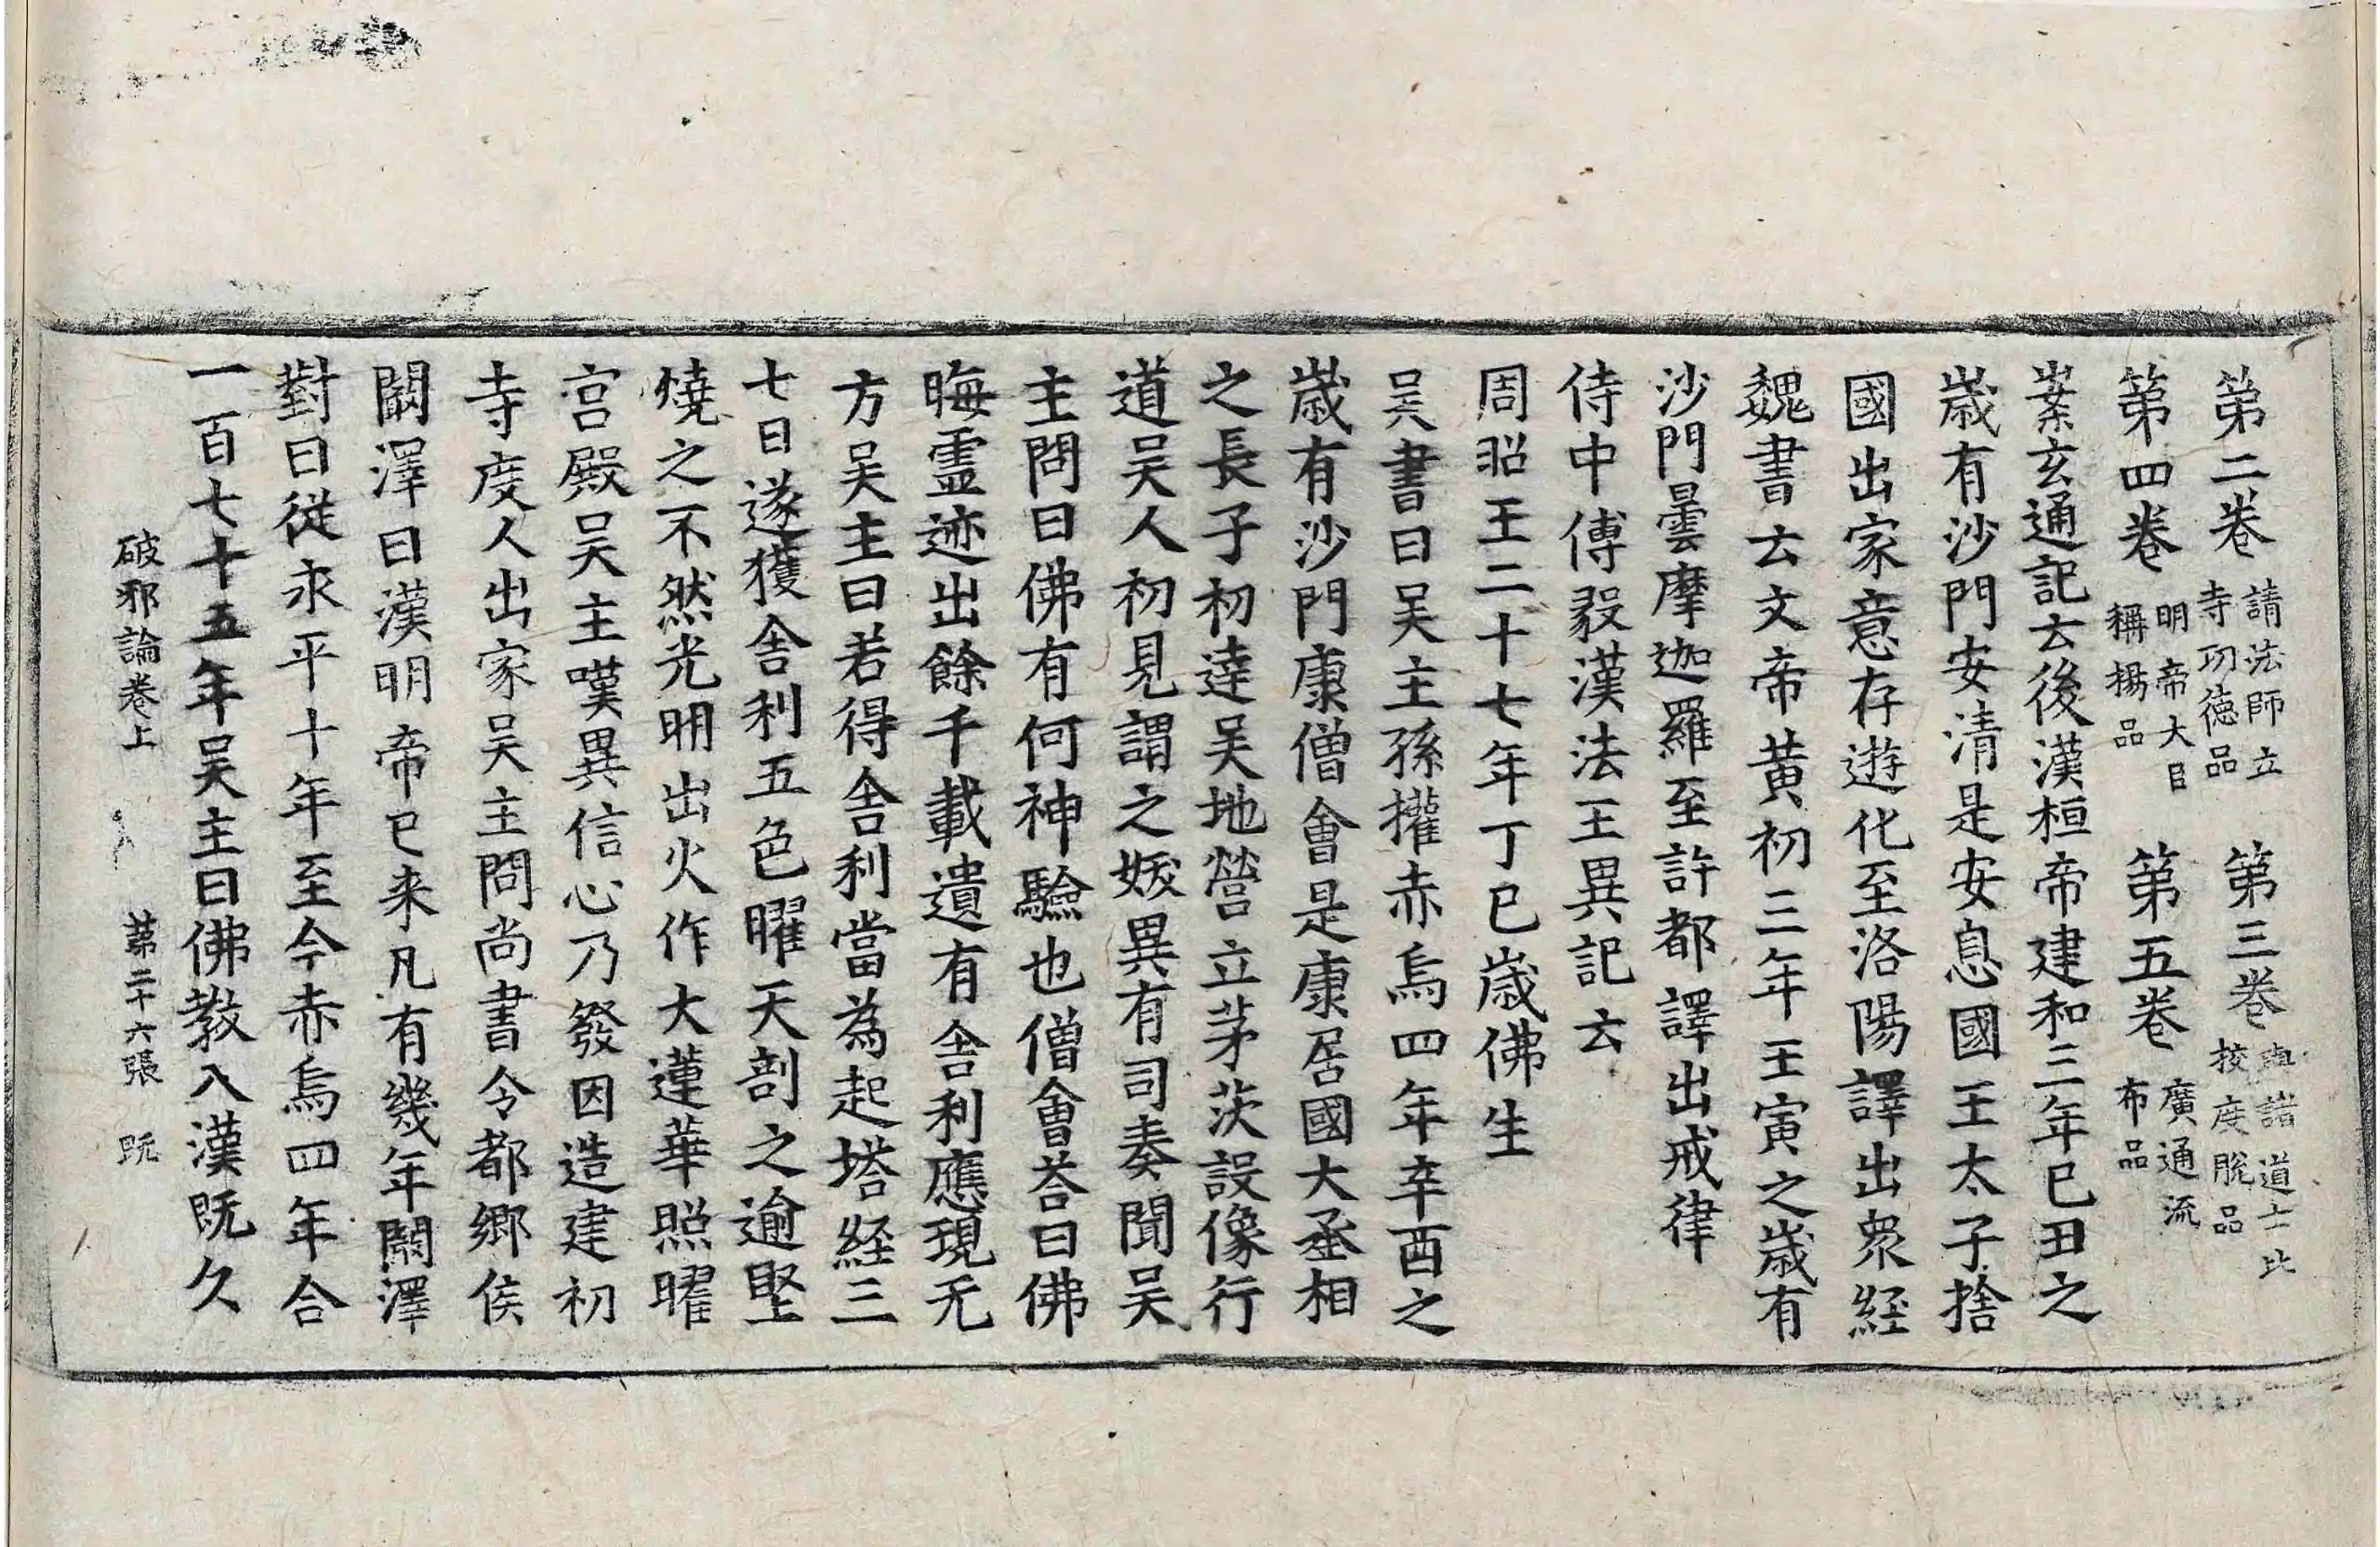 第二卷 請法師立寺功德品 第三卷 與諸道士比挍度脫品
第四卷 明帝大臣稱揚品 第五卷 廣通流布品
案玄通記云後漢桓帝建和三年巳丑之
歲有沙門安清是安息國王太子捨
國出家意存遊化至洛陽譯出衆経
魏書云文帝黃初三年壬寅之歲有
沙門曇摩迦羅至許都譯出戒律
侍中傅毅漢法王異記云
周昭王二十七年丁巳歲佛生
吴書曰吴主孫權赤烏四年辛酉之
歲有沙門康僧會是康居國大丞相
之長子初達吴地營立茅茨設像行
道吴人初見謂之妖異有司奏聞吴
主問曰佛有何神驗也僧會荅曰佛
晦靈迹出餘千載遺有舎利應現无
方吴主曰若得舎利當為起塔経三
七日遂獲舎利五色曜天剖之逾堅
燒之不然光明出火作大蓮華照曜
宮殿吴主嘆異信心乃發因造建初
寺度人出家吴主問尚書令都鄉侯
闞澤曰漢明帝已来凡有幾年闞澤
對曰從永平十年至今赤烏四年合
一百七十五年吴主曰佛教入漢既久
破邪論卷上 第二十六張 既